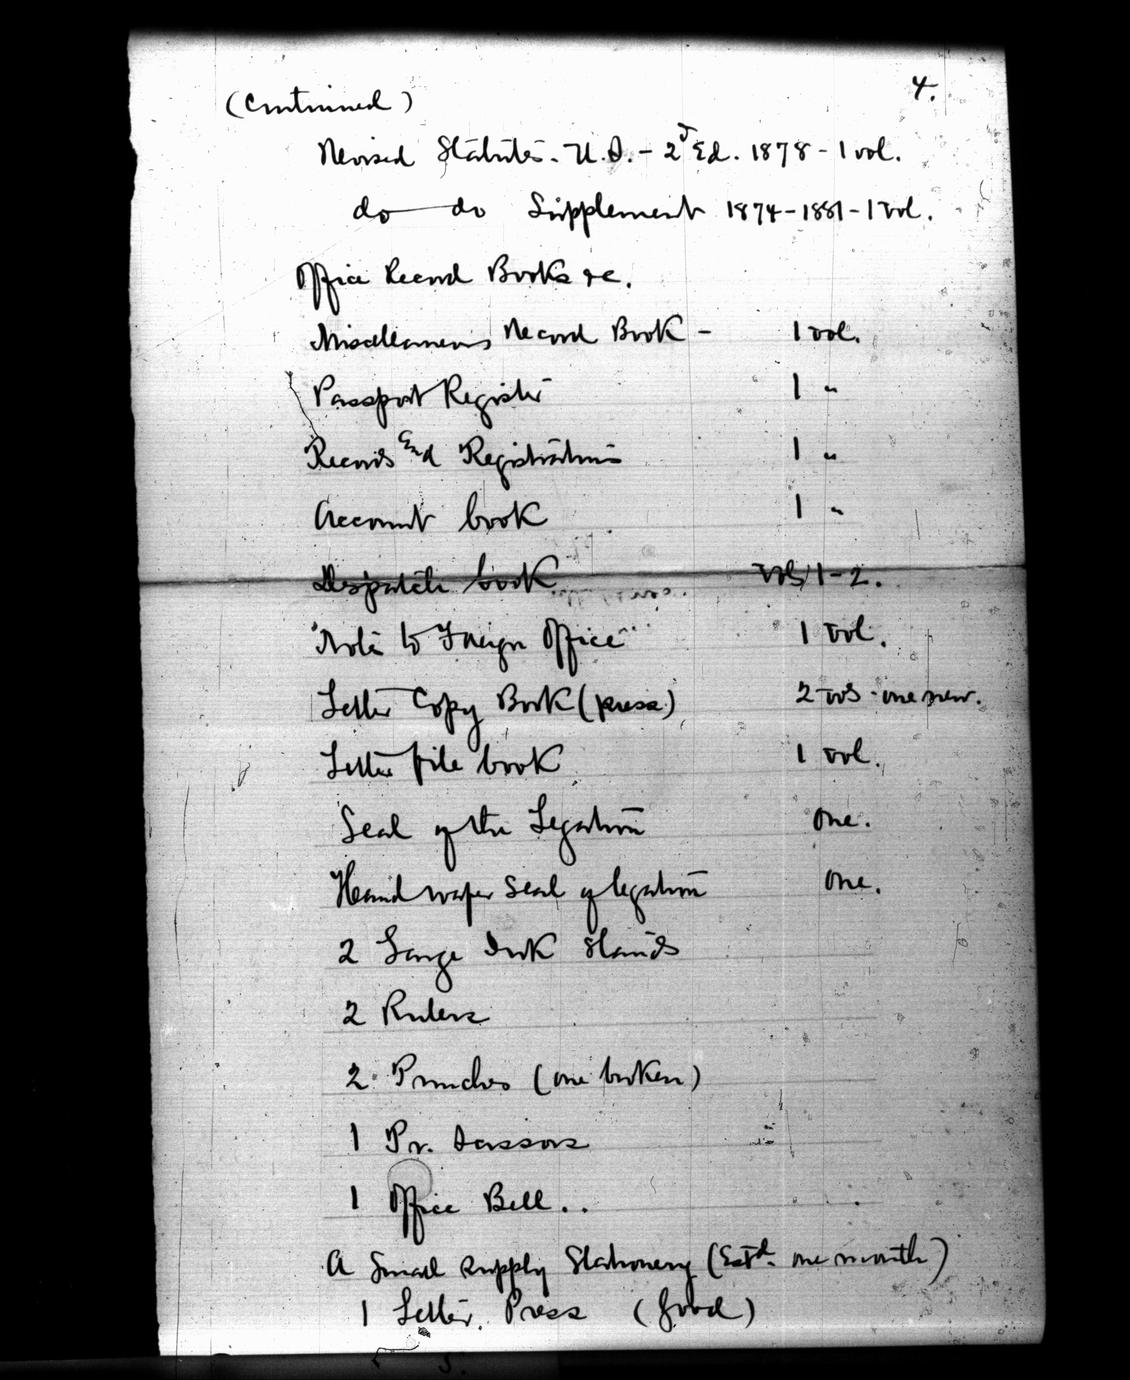 4.
(Continued)
Revised Statutes. U.S. - 2d Ed. 1878 - 1 vol.
do — do Supplement 1874-1881-1 Vol.
Office Record Books &c.
Miscellaneous Record Book - 1 vol.
Passport Register 1 "
Records and Registrations 1 "
Account book 1 "
Despatch book vols 1-2.
"Note to Foreign Office" 1 vol.
Letter Copy Book (press) 2 vols - one new.
Letter file book 1 vol.
Seal of the Legation one.
Hand wafer Seal of legation one.
2 Large Ink Stands
2 Rulers
2 Punches (one broken)
1 Pr. Scissors
1 Office Bell..
A Small supply Stationery (Estd. one month)
1 Letter Press (good)
5.